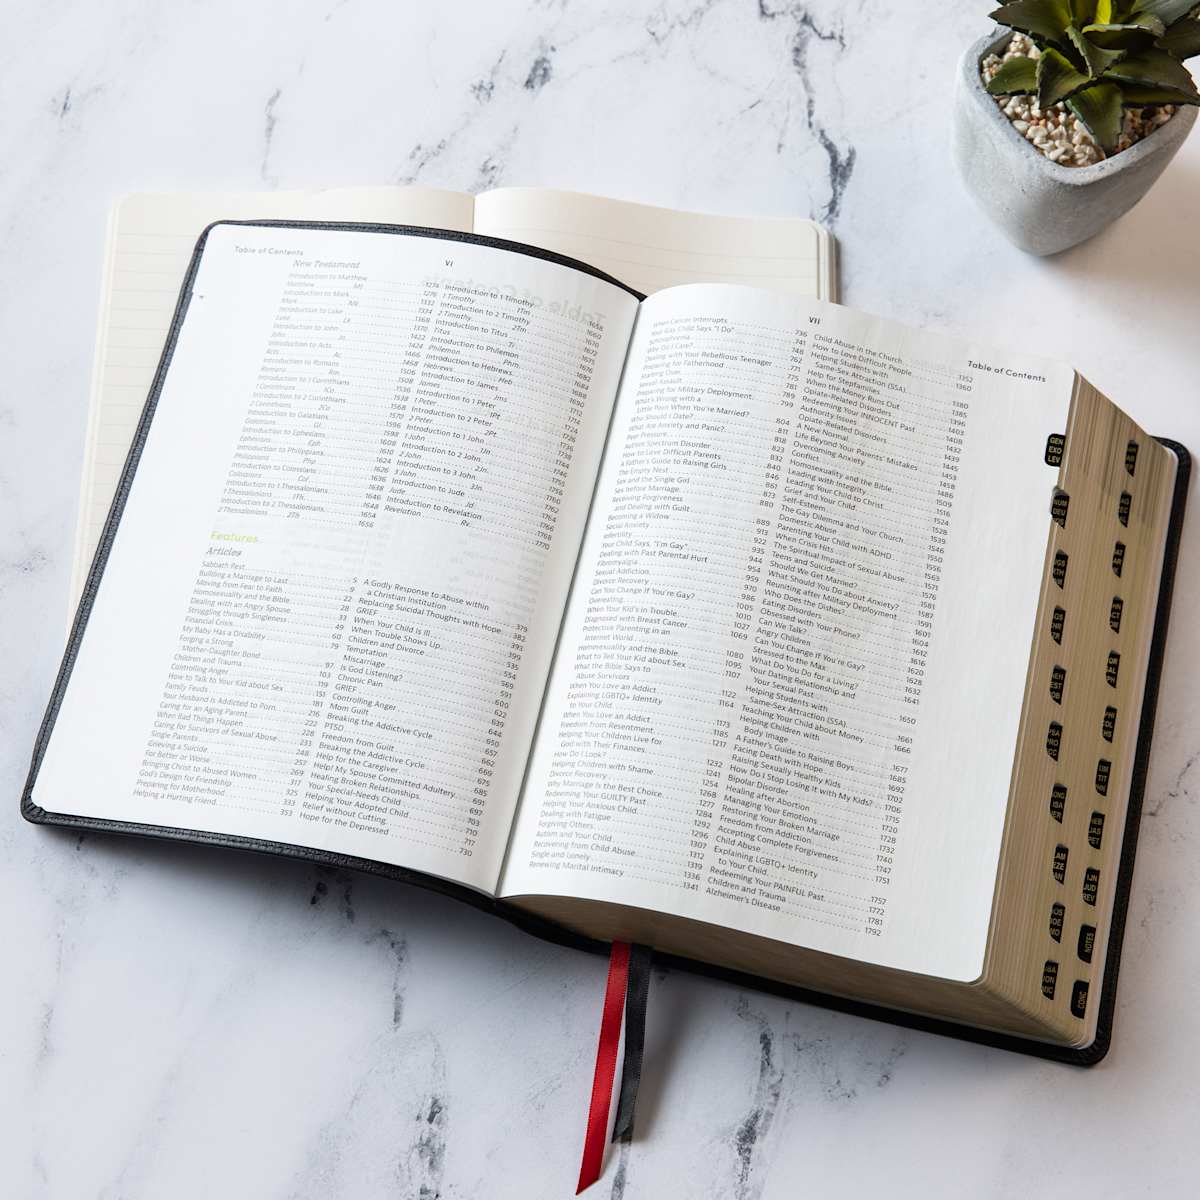 Table of Contents
VI
New Testament
Introduction to Matthew 1274
Matthew Mt 1276
Introduction to Mark 1332
Mark Mk 1334
Introduction to Luke 1368
Luke Lk 1370
Introduction to John 1422
John Jn 1424
Introduction to Acts 1466
Acts Ac 1468
Introduction to Romans 1506
Romans Rm 1508
Introduction to 1 Corinthians 1536
1 Corinthians 1Co 1538
Introduction to 2 Corinthians 1568
2 Corinthians 2Co 1570
Introduction to Galatians 1596
Galatians Gl 1598
Introduction to Ephesians 1608
Ephesians Eph 1610
Introduction to Philippians 1624
Philippians Php 1626
Introduction to Colossians 1636
Colossians Col 1638
Introduction to 1 Thessalonians 1646
1 Thessalonians 1Th 1648
Introduction to 2 Thessalonians 1654
2 Thessalonians 2Th 1656
Introduction to 1 Timothy 1658
1 Timothy 1Tm 1660
Introduction to 2 Timothy 1670
2 Timothy 2Tm 1672
Introduction to Titus
Titus Ti 1676
Introduction to Philemon 1682
Philemon Phm 1684
Introduction to Hebrews 1688
Hebrews Heb 1690
Introduction to James 1712
James Jms 1714
Introduction to 1 Peter 1724
1 Peter 1Pt 1726
Introduction to 2 Peter 1736
2 Peter 2Pt 1738
Introduction to 1 John 1744
1 John 1Jn 1746
Introduction to 2 John 1755
2 John 2Jn 1756
Introduction to 3 John 1760
3 John 3Jn 1762
Introduction to Jude 1764
Jude Jd 1766
Introduction to Revelation 1768
Revelation Rv 1770
Features
Articles
Sabbath Rest 5
Building a Marriage to Last 9
Moving from Fear to Faith 22
Homosexuality and the Bible 28
Dealing with an Angry Spouse 33
Struggling through Singleness 49
Financial Crisis 60
My Baby Has a Disability 79
Forging a Strong
Mother-Daughter Bond 97
Children and Trauma 103
Controlling Anger 119
How to Talk to Your Kid about Sex 151
Family Feuds 181
Your Husband Is Addicted to Porn 216
Caring for an Aging Parent 222
When Bad Things Happen 228
Caring for Survivors of Sexual Abuse 233
Single Parents 248
Grieving a Suicide 257
For Better or Worse 269
Bringing Christ to Abused Women 311
God's Design for Friendship 325
Preparing for Motherhood 333
Helping a Hurting Friend 353
A Godly Response to Abuse within
a Christian Institution 379
Replacing Suicidal Thoughts with Hope 382
GRIEF 393
When Your Child Is Ill 399
When Trouble Shows Up 535
Children and Divorce 554
Temptation 569
Miscarriage 591
Is God Listening? 600
Chronic Pain 622
GRIEF 639
Controlling Anger 644
Mom Guilt 650
Breaking the Addictive Cycle 657
PTSD 662
Freedom from Guilt 669
Breaking the Addictive Cycle 675
Help for the Caregiver 685
Help! My Spouse Committed Adultery 691
Healing Broken Relationships 697
Your Special-Needs Child 703
Helping Your Adopted Child 710
Relief without Cutting 717
Hope for the Depressed 730
VII
Table of Contents
When Cancer Interrupts 736
Your Gay Child Says, "I Do" 741
Schizophrenia 748
Why Do I Care? 762
Dealing with Your Rebellious Teenager 771
Preparing for Fatherhood 775
Starting Over 781
Sexual Assault 789
Preparing for Military Deployment 799
What's Wrong with a
Little Porn When You're Married? 804
Who Should I Date? 811
What Are Anxiety and Panic? 818
Peer Pressure 823
Autism Spectrum Disorder 832
How to Love Difficult Parents 840
A Father's Guide to Raising Girls 846
The Empty Nest 861
Sex and the Single Girl 873
Sex before Marriage 880
Receiving Forgiveness
and Dealing with Guilt 889
Becoming a Widow 913
Social Anxiety 922
Infertility 935
Your Child Says, "I'm Gay" 944
Dealing with Past Parental Hurt 954
Fibromyalgia 959
Sexual Addiction 970
Divorce Recovery 986
Can You Change If You're Gay? 1005
Overeating 1010
When Your Kid's in Trouble 1027
Diagnosed with Breast Cancer 1069
Protective Parenting in an
Internet World 1080
Homosexuality and the Bible 1095
What to Tell Your Kid about Sex 1107
What the Bible Says to
Abuse Survivors 1122
When You Love an Addict 1164
Explaining LGBTQ+ Identity
to Your Child 1173
When You Love an Addict 1185
Freedom from Resentment 1217
Helping Your Children Live for
God with Their Finances 1232
How Do I Look? 1241
Helping Children with Shame 1254
Divorce Recovery 1268
Why Marriage Is the Best Choice 1277
Redeeming Your GUILTY Past 1284
Helping Your Anxious Child 1292
Dealing with Fatigue 1296
Forgiving Others 1307
Autism and Your Child 1312
Recovering from Child Abuse 1319
Single and Lonely 1336
Renewing Marital Intimacy 1341
Child Abuse in the Church 1352
How to Love Difficult People 1360
Helping Students with
Same-Sex Attraction (SSA) 1380
Help for Stepfamilies 1385
When the Money Runs Out 1396
Opiate-Related Disorders 1403
Redeeming Your INNOCENT Past 1408
Authority Issues 1432
Opiate-Related Disorders 1439
A New Normal 1445
Life Beyond Your Parents' Mistakes 1459
Overcoming Anxiety 1486
Conflict 1509
Homosexuality and the Bible 1516
Leading with Integrity 1524
Leading Your Child to Christ 1528
Grief and Your Child 1539
Self-Esteem 1546
The Gay Dilemma and Your Church 1550
Domestic Abuse 1556
Parenting Your Child with ADHD 1563
When Crisis Hits 1571
The Spiritual Impact of Sexual Abuse 1576
Teens and Suicide 1581
Should We Get Married? 1587
What Should You Do about Anxiety? 1591
Reuniting after Military Deployment 1601
Who Does the Dishes? 1604
Eating Disorders 1612
Obsessed with Your Phone? 1616
Can We Talk? 1620
Angry Children 1628
Can You Change If You're Gay? 1632
Stressed to the Max 1641
What Do You Do for a Living?
Your Dating Relationship and
Your Sexual Past 1650
Helping Students with
Same-Sex Attraction (SSA) 1661
Teaching Your Child about Money 1666
Helping Children with
Body Image 1677
A Father's Guide to Raising Boys 1685
Facing Death with Hope 1692
Raising Sexually Healthy Kids 1702
How Do I Stop Losing It with My Kids? 1706
Bipolar Disorder 1715
Healing after Abortion 1720
Managing Your Emotions 1728
Restoring Your Broken Marriage 1732
Freedom from Addiction 1740
Accepting Complete Forgiveness 1747
Child Abuse 1751
Explaining LGBTQ+ Identity
to Your Child 1757
Redeeming Your PAINFUL Past 1772
Children and Trauma 1781
Alzheimer's Disease 1792
GEN
EXO
LEV
NUM
DEU
NOTES
CONC